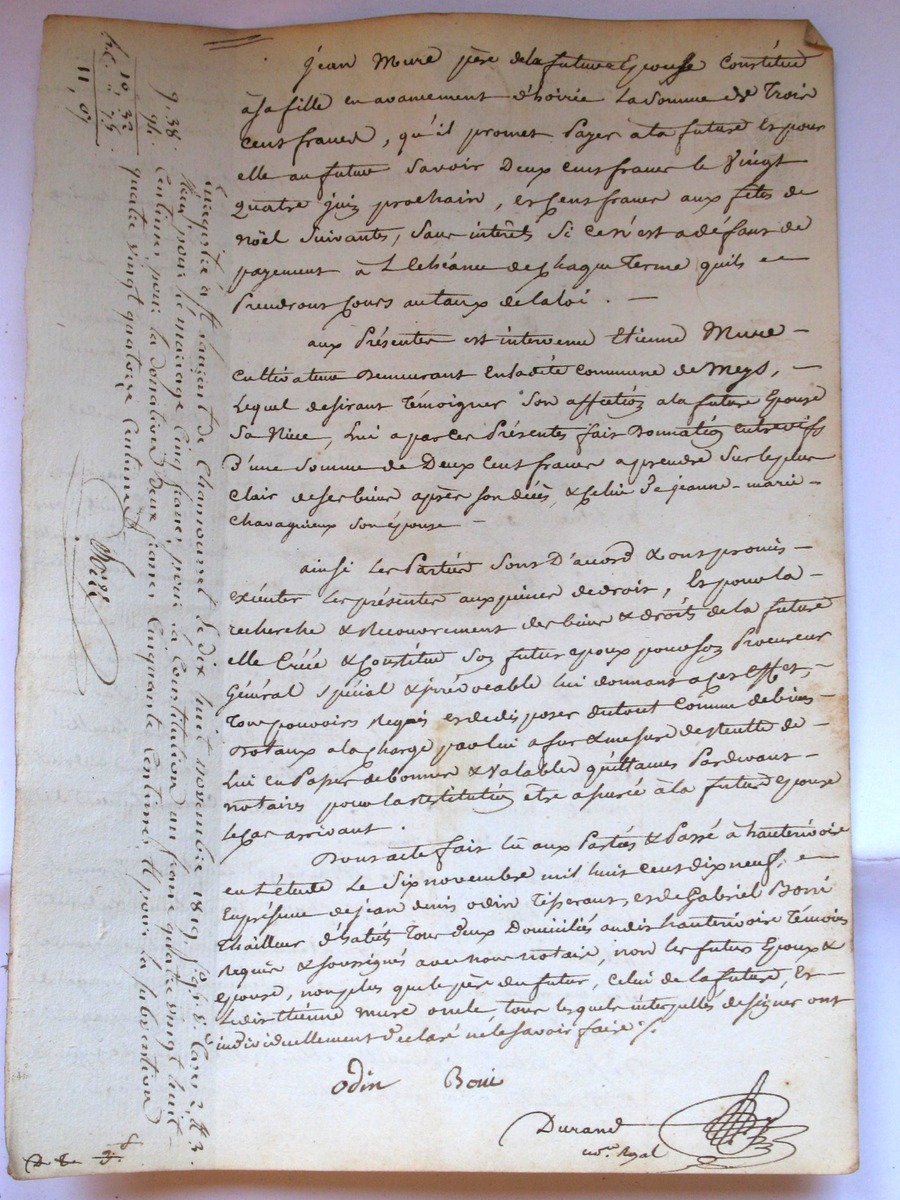 Jean Mure père de la future Epouse Constitue
à sa fille en avancement d'hoirie La Somme de Trois
cent francs, qu'il promet Payer à la future Et pour
elle au futur Savoir Deux cent francs le Vingt
quatre juin prochain, et Cent francs aux fêtes de
noël Suivantes, Sans intérêts Si ce n'est a défaut de
payement à L'échéance de Chaque Terme quils
Prendront Cours au taux de la loi . —
aux Présentes est intervenu Etienne Mure —
Cultivateur Demeurant En ladite Commune de Meys, —
Lequel desirant Témoigner Son affection a la future Epouse
Sa Niece, Lui a par ces Présentes fait Donnation entrevifs
d'une Somme de Deux Cent francs a prendre Sur le plus
Clair de ses biens après son décès, & Celui de jeanne-marie-
Chavagnieux Son épouse —
ainsi les Parties Sont D'acord & ont promis —
exécuter les présentes aux peines de droit, Et pour la —
recherche & Recouvrement des biens & droits de la future
elle Créé & Constitue Son futur epoux pour son Procureur
Général spécial & irrévocable lui donnant a ces Effets, —
Tous pouvoirs Requis et de disposer du tout Comme de biens
Dotaux a la charge par lui a fur & mesure de Recette de —
Lui en Passer de bonnes & Valables quittances Pardevant —
notaires pour la restitution etre assurée à la future Epouse
le Cas arrivant .
Dont acte fait lû aux Parties & Passé à hauterivoire
en l'étude Le Six novembre mil huit cent dix neuf,
En présence de jean denis odin Tisserant, et de Gabriel Boni
Thailleur d'habits Tous deux Domiciliés audit hauterivoire Témoins
Requis & Soussignés avec nous notaire, non les futurs Epoux &
epouse, non plus que le père du futur, Celui de la future, Et
Ledit Etienne Mure oncle, tous lesquels interpellés de signer ont
individuellement Déclaré ne le savoir faire ./.
odin Boni
Durand
no.re Royal
9. 38.
94.
10 32
" 75.
11, 07
Enregistré à St Laurent de Chamousset le dix huit novembre 1819, f° 98 V° Cases 2, et 3.
Reçu pour le mariage Cinq francs, pour la Constitution un franc quatre vingt huit
Centimes pour la donation deux francs Cinquante Centimes, et pour la subvention
quatre vingt quatorze Centimes